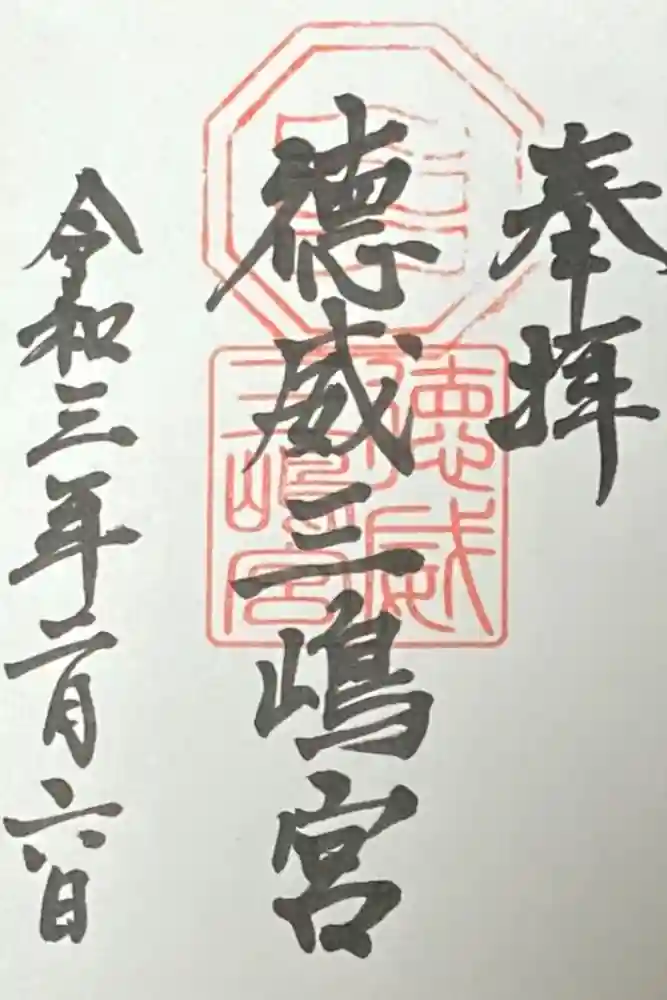 奉拝
徳威三嶋宮
徳威
三嶋宮
令和三年二月六日